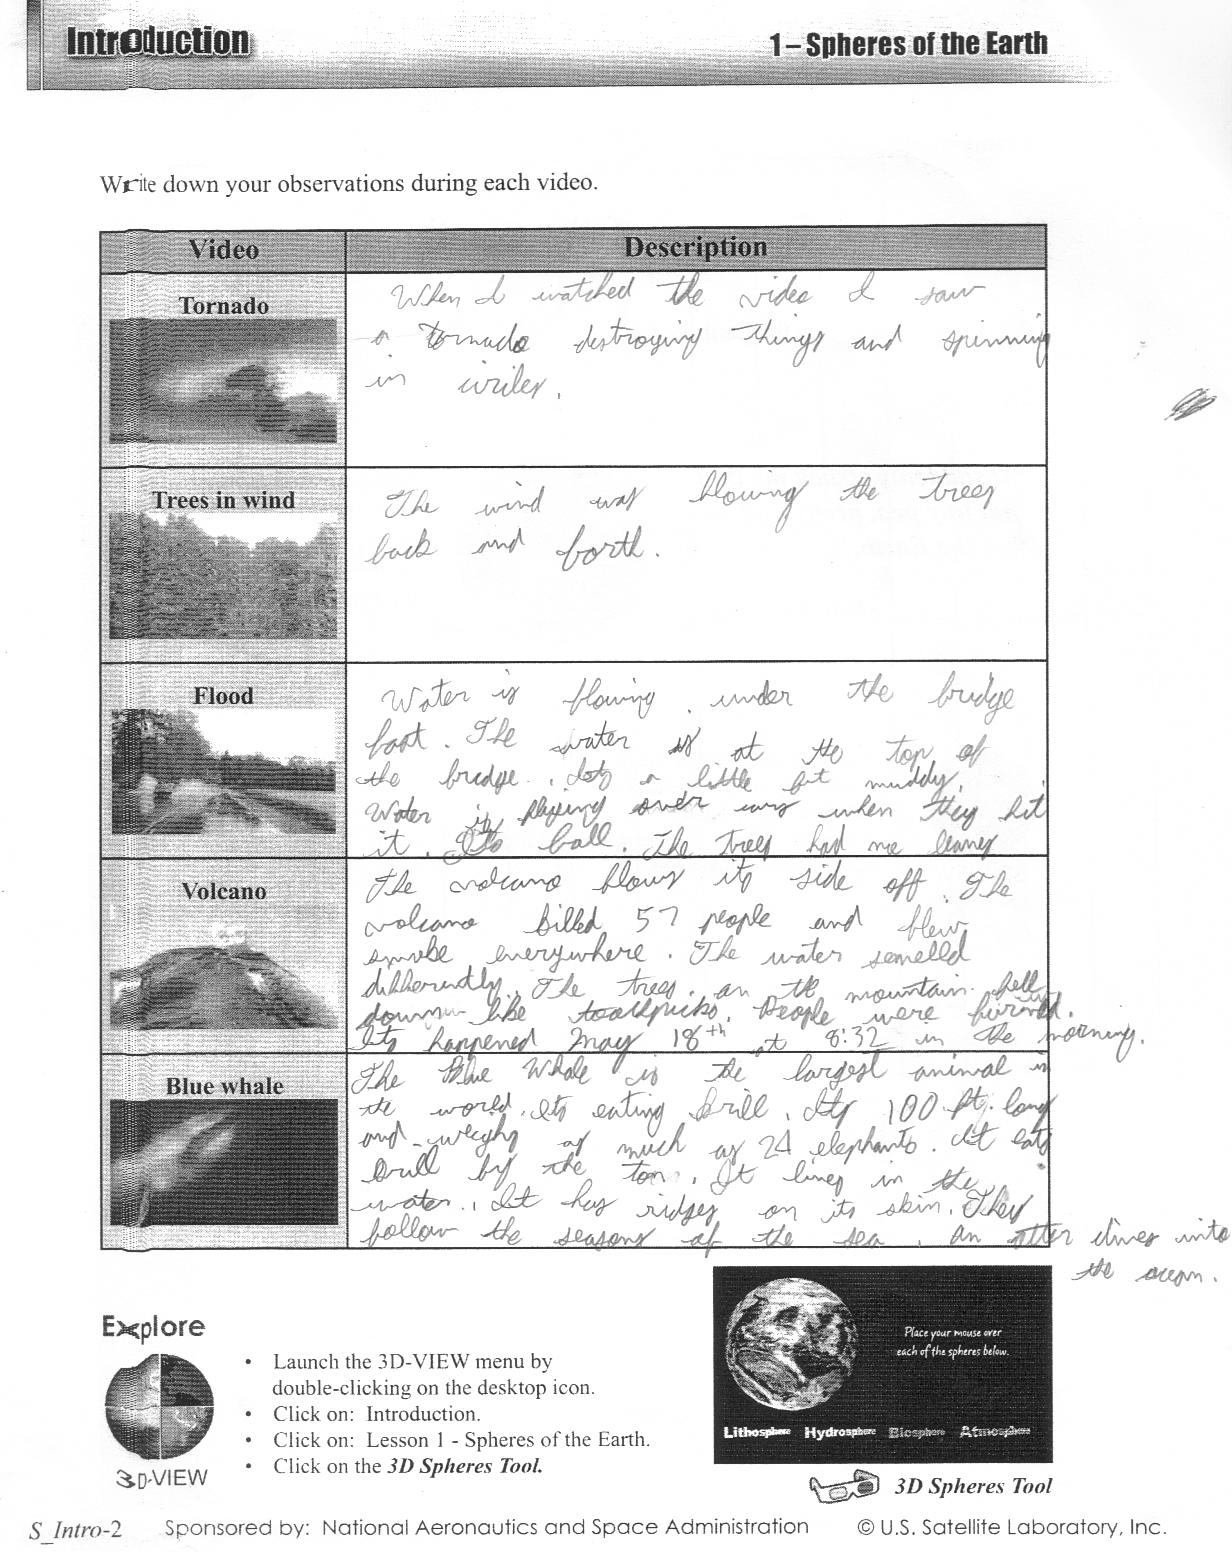 Introduction
1 – Spheres of the Earth
Write down your observations during each video.
Video
Description
Tornado
When I watched the video I saw
a tornado destroying things and spinning
in
Trees in wind
The wind was blowing the trees
back and forth.
Flood
Water is flowing under the bridge
fast. The water is at the top of
the bridge. Its a little bit muddy.
Water is over cars when they hit
it. Its fall. The trees had no leaves
Volcano
The volcano blows its side off. The
volcano killed 57 people and flew
smoke everywhere. The water semelled
differently. The trees on the mountain fell
down like toothpicks. People were
Its happened May 18th at 8:32 in the morning.
Blue whale
The Blue Whale is the largest animal in
the world. Its eating krill. Its 100 ft. long
and weighs as much as 24 elephants. It eats
krill by the ton. It lives in the
water. It has ridges on its skin. They
follow the seasons of the sea. An otter dives into
the ocean.
Explore
3D-VIEW
• Launch the 3D-VIEW menu by
double-clicking on the desktop icon.
• Click on: Introduction.
• Click on: Lesson 1 - Spheres of the Earth.
• Click on the 3D Spheres Tool.
Place your mouse over
each of the spheres below.
Lithosphere Hydrosphere Biosphere Atmosphere
3D Spheres Tool
S_Intro-2 Sponsored by: National Aeronautics and Space Administration © U.S. Satellite Laboratory, Inc.